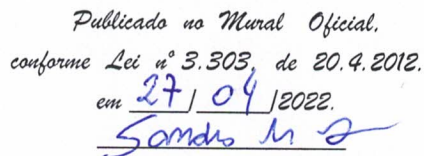 Publicado no Mural Oficial,
conforme Lei nº 3.303, de 20.4.2012.
em 27/04/2022.